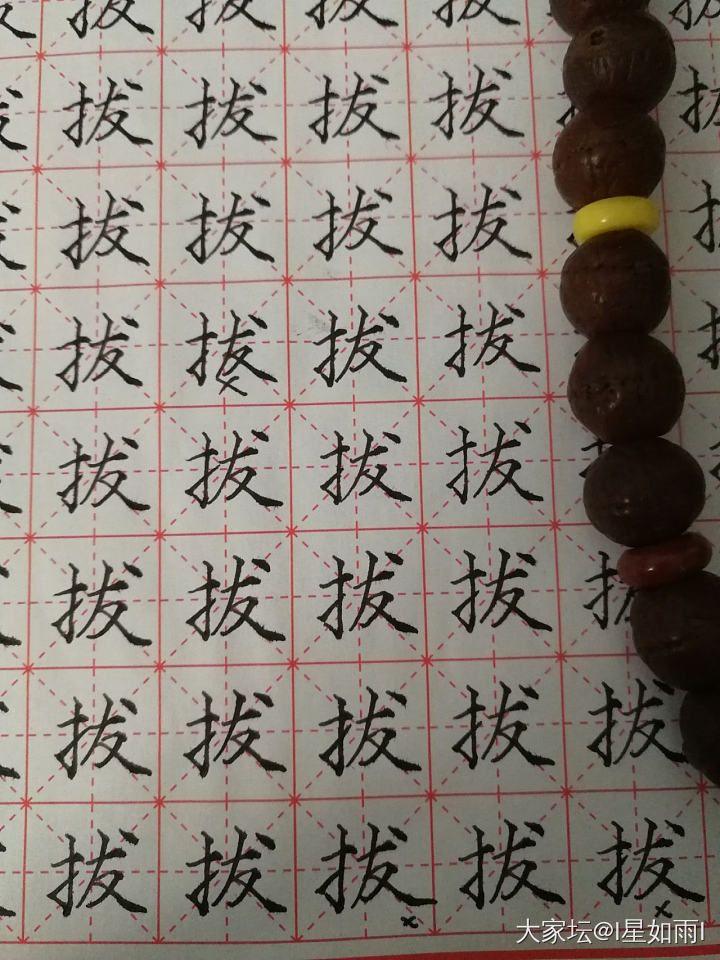 拔 拔 拔 拔
拔 拔 拔 拔
拔 拔 拔 拔
拔 拔 拔 拔
拔 拔 拔 拔
拔 拔 拔 拔
拔 拔 拔 拔 拔
拔 拔 拔 拔 拔
大家坛@I星如雨I